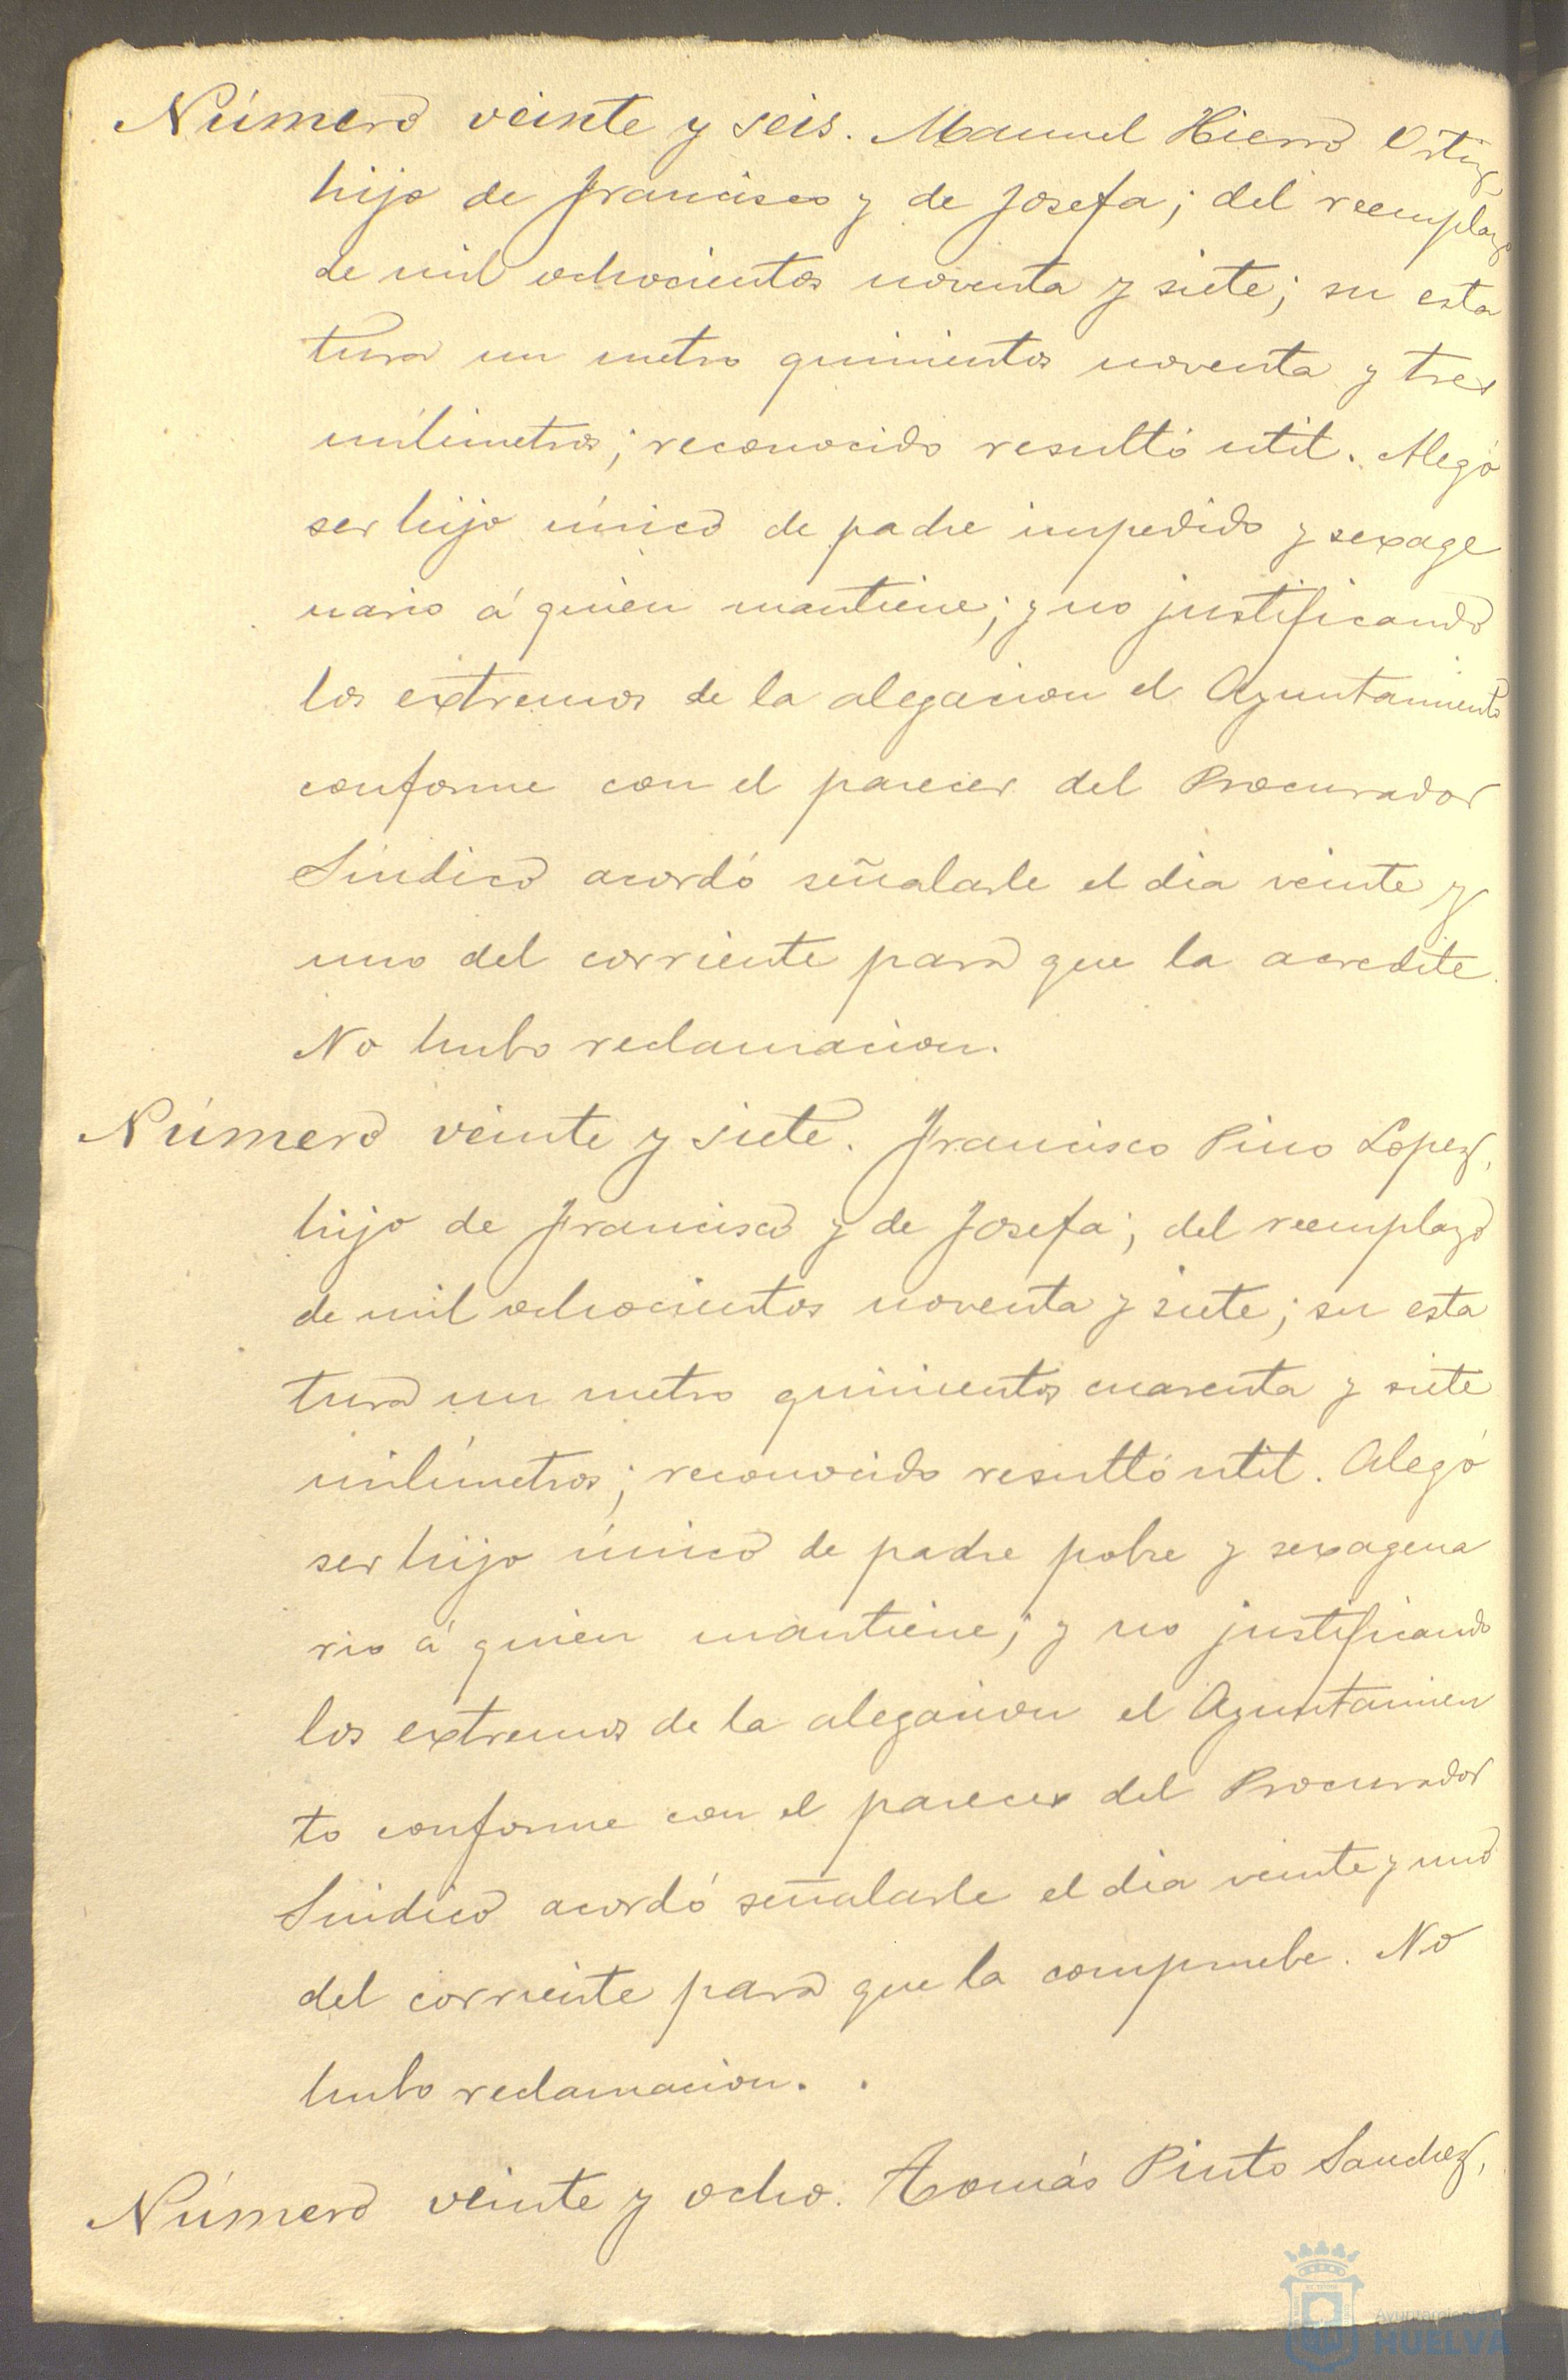 Número veinte y seis. Manuel Hierro Ortiz
hijo de Francisco y de Josefa; del reemplazo
de mil ochocientos noventa y siete; su esta
tura un metro quinientos noventa y tres
milimetros; reconocido resultó util. Alegó
ser hijo único de padre impedido y sexage
nario á quien mantiene; y no justificando
los extremos de la alegacion el Ayuntamiento
conforme con el parecer del Procurador
Síndico acordó señalarle el dia veinte y
uno del corriente para que la acredite.
No hubo reclamacion.
Número veinte y siete. Francisco Pino Lopez,
hijo de Francisco y de Josefa; del reemplazo
de mil ochocientos noventa y siete; su esta
tura un metro quinientos cuarenta y siete
milímetros; reconocido resultó util. Alegó
ser hijo único de padre pobre y sexagena
rio á quien mantiene; y no justificando
los extremos de la alegacion el Ayuntamien
to conforme con el parecer del Procurador
Sindico acordó señalarle el dia veinte y uno
del corriente para que la compruebe. No
hubo reclamacion.
Número veinte y ocho. Tomás Pinto Sanchez,
Ayuntamiento de
HUELVA